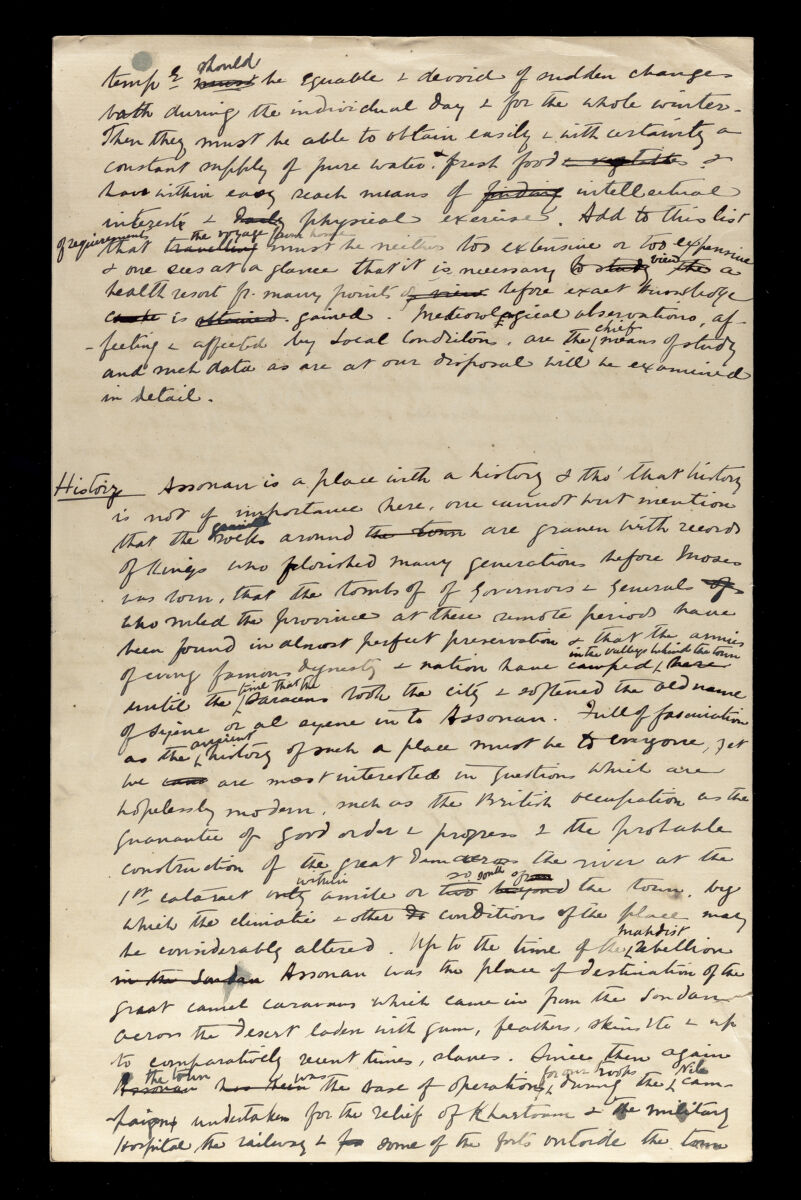 should
temp.re must be equable & devoid of sudden changes
both during the individual day & for the whole winter.
Then they must be able to obtain easily & with certainty a
constant supply of pure water & fresh food & vegetables &
have within easy reach means of finding intellectual
interests & Daily physical exercise. Add to this list
of requirements the voyage from home
that travelling must be neither too extensive or too expensive
& one sees at a glance that it is necessary to study view the a
health resort fr. many points of view before exact knowledge
is attained gained. Meteorological observations, af-
chief
-fecting & affected by Local Conditions, are the means of study
and such data as are at our disposal will be examined
in detail.
History Assouan is a place with a history & tho' that history
is not of importance here, one cannot but mention
that the rocks around the town are graven with records
of Kings who florished many generations before Moses
was born, that the tombs of of Governors & Generals of
who ruled the province at these remote periods have
been found in almost perfect preservation & that the armies
in the valleys behind the town
of every famous dynesty & nation have camped there
time that the
until the Saracens took the city & softened the old name
of Syene or al syene in to Assouan. Full of fascination
ancient
as the history of such a place must be to everyone, yet
we are most interested in questions which are
hopelessly modern, such as the British occupation as the
guarantee of good order & progress & the probable
construction of the great Dam across the river at the
within so south of
1st cataract only a mile or two beyond the town, by
which the climatic & other conditions of the place may
Mahdist
be considerably altered. Up to the time of the rebellion
in the Soudan Assouan was the place of destination of the
great camel caravans which came in from the Soudan
across the desert laden with gum, feathers, skins etc & up
to comparatively recent times, slaves. Since then again
the town was for our troops Nile
Assouan has been the base of operations during the cam-
-paigns undertaken for the relief of Khartoum & the military
Hospital the railway & some of the forts outside the town